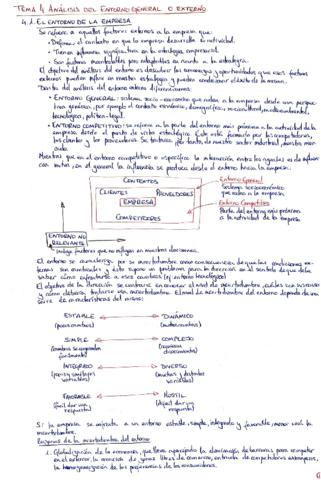 TEMA 4 ANÁLISIS DEL ENTORNO GENERAL O EXTERNO
4.1. EL ENTORNO DE LA EMPRESA
Se refiere a aquellos factores externos a la empresa que:
• Definen el contexto en que la empresa desarrolla su actividad.
• Tienen influencia significativa en la estrategia empresarial.
• Son factores incontrolables pero adaptables en cuanto a la estrategia.
El objetivo del análisis del entorno es descubrir las amenazas y oportunidades que esos factores
externos pueden influir en nuestra estrategia y pueden condicionar el éxito de la misma.
Dentro del análisis del entorno externo diferenciamos:
• ENTORNO GENERAL: sistema socio-económico que rodea a la empresa desde una perspec-
tiva
tecnológico, político-legal.
• ENTORNO COMPETITIVO: se refiere a la parte del entorno más próxima a la actividad de la
empresa desde el punto de vista estratégico. Este está formado por los competidores,
los clientes y los proveedores. Se trataría, por tanto, de nuestro sector industrial
Mientras que en el entorno competitivo o específico la interacción entre los agentes es de influen-
cia mutua, en el general la influencia se produce desde el entorno hacia la empresa.
CONTEXTOS
CLIENTES PROVEEDORES
EMPRESA
COMPETIDORES
Entorno General
Sistema socioeconómico
que rodea a la empresa
Entorno Competitivo
Parte del entorno más próxima
a la actividad de la empresa
ENTORNO NO
RELEVANTE
Incluye factores que no influyen en nuestras decisiones.
El entorno se caracteriza por su incertidumbre como consecuencia de que las condiciones ex-
ternas son cambiantes y esto supone un problema para la dirección en el sentido de que debe
saber cómo enfrentarse a esos cambios (ej entorno tecnológico)
El objetivo de la dirección se centra en conocer el nivel de incertidumbre
y cómo debería tratarse esa incertidumbre. El nivel de incertidumbre del entorno depende de una
serie de características del mismo:
ESTABLE DINÁMICO
(pocos cambios) (muchos cambios)
SIMPLE COMPLEJO
(cambios se comprenden (requieren
fácilmente) conocimientos)
INTEGRADO DIVERSO
(pocas y similares (muchas y distintas
variables) variables)
FAVORABLE HOSTIL
(fácil dar una (difícil dar una
respuesta) respuesta)
Si la empresa se enfrenta a un entorno estable, simple, integrado y favorable menor será la
incertidumbre.
Razones de la incertidumbre del entorno
1. Globalización de la economía, que lleva aparejada la eliminación de barreras para competir
en el exterior, la creación de zonas libres de comercio, entrada de competidores extranjeros,
la homogeneización de las preferencias de los consumidores.